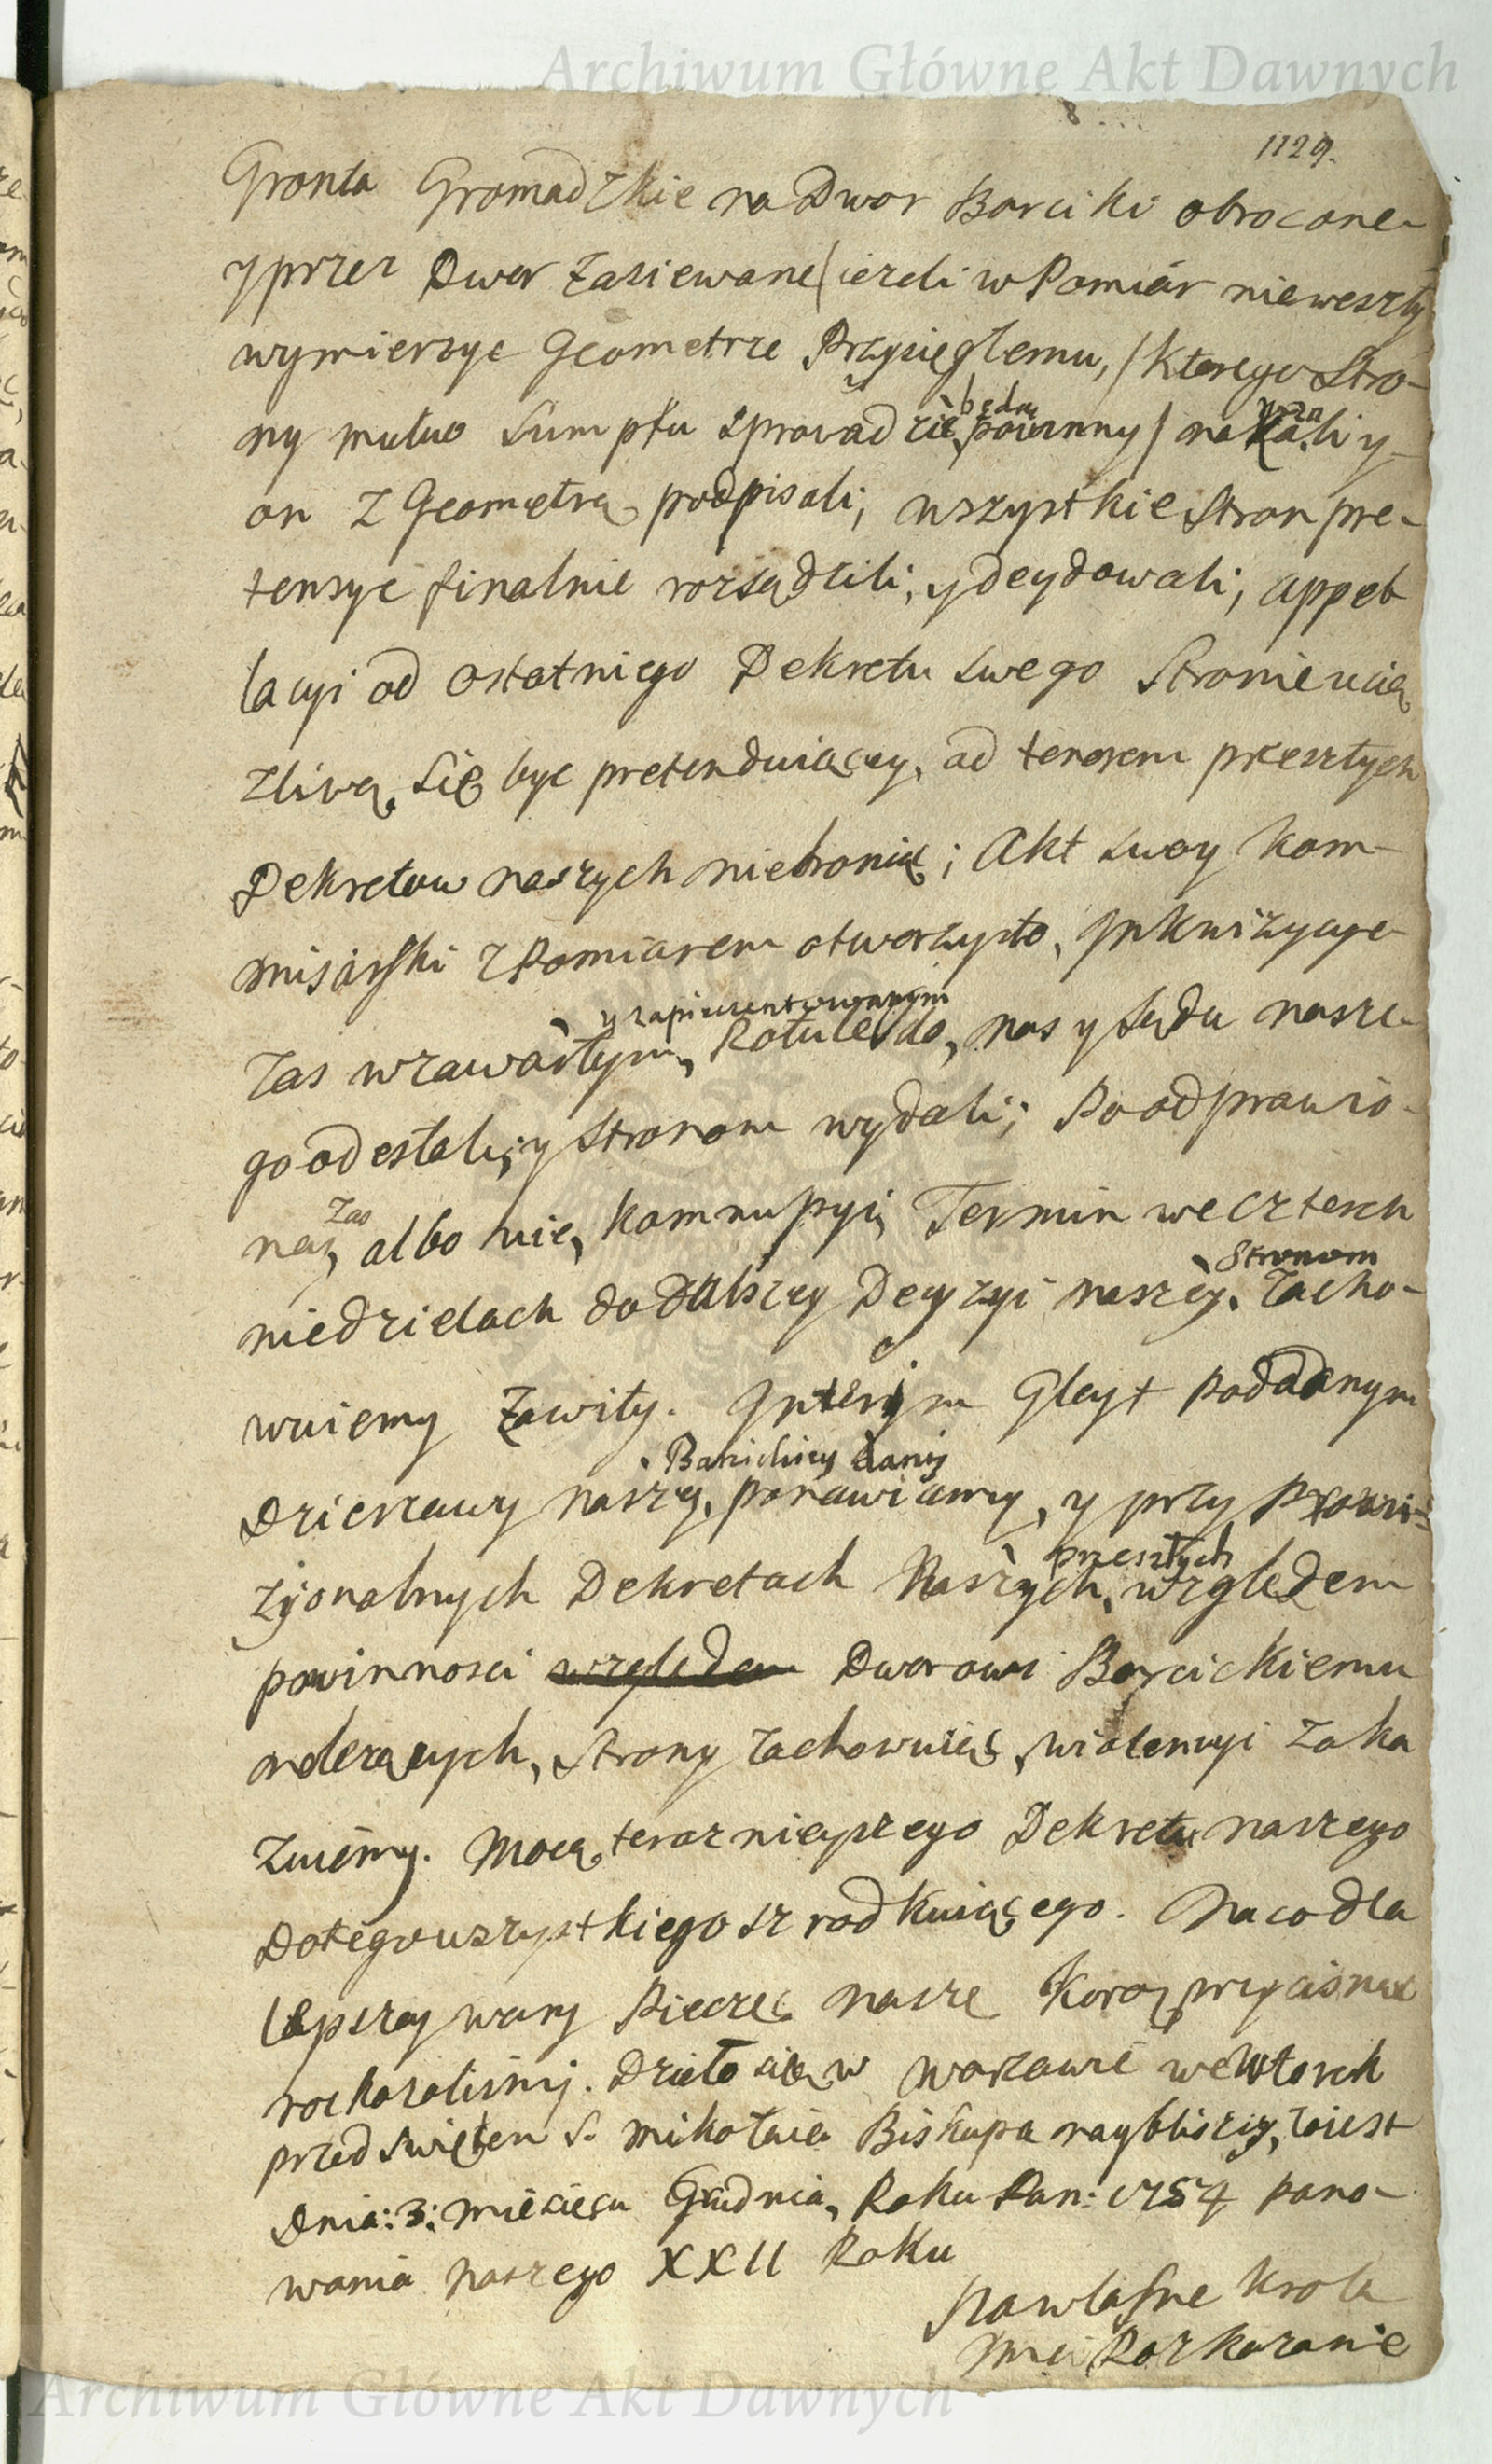 Archiwum Główne Akt Dawnych
1129.
Gronta Gromadzkie na Dwor Barciki obrocone
y przez Dwor zasiewane /ieżeli w Pomiár nie weszły
wymierzyć Geometrze Przysięgłemu, / ktorego Stro-
ny mutuo Sumptu sprowadzić będą powinny /
on z Geometrą podpisali, wszystkie Stron pre-
tensye finalnie rozsądzili, y decydowali, appel
lacyi od ostatniego Dekretu swego Stronie ucią
żliwą się być pretenduiącey, ad tenorem przeszłych
Dekretow naszych niebroniąc; Akt swoy Kom-
misarski z Pomiarem otworzysto, Inkwizycye
zas w zawartym, y zapieczentowanym Rotule do nas y Sądu nasze-
go odesłali, y Stronom wydali; Po odprawio-
ney zas albo nie, Kommissyi, Termin we czterech
niedzielach do dalszey Decyzyi naszey Stronom zacho-
wuiemy zawity. Interim Gleyt Poddanym
Dzierzawy naszey, Barcickiey dany ponawiamy, y przy Prowi-
zyonalnych Dekretach Naszych, przeszłych względem
powinnosci względem Dworowi Barcickiemu
należących, Strony zachowuiąc, wiolencyi zaka
zuiemy. Mocą teraznieyszego Dekretu naszego
Do tego wszystkiego szrodkuiącego. Na co dla
lepszey wiary Pieczęć nasze Koroņ przycisnąć
rozkazalismy. Działo się w Warszawie we Wtorek
przed Swiętem S. Mikołaia Biskupa naybliszy, to iest
Dnia: 3: Miesiąca Grudnia, Roku Pan: 1754 pano-
wania Naszego XXII Roku
Na własne Krola
Mci Rozkazanie
Archiwum Główne Akt Dawnych